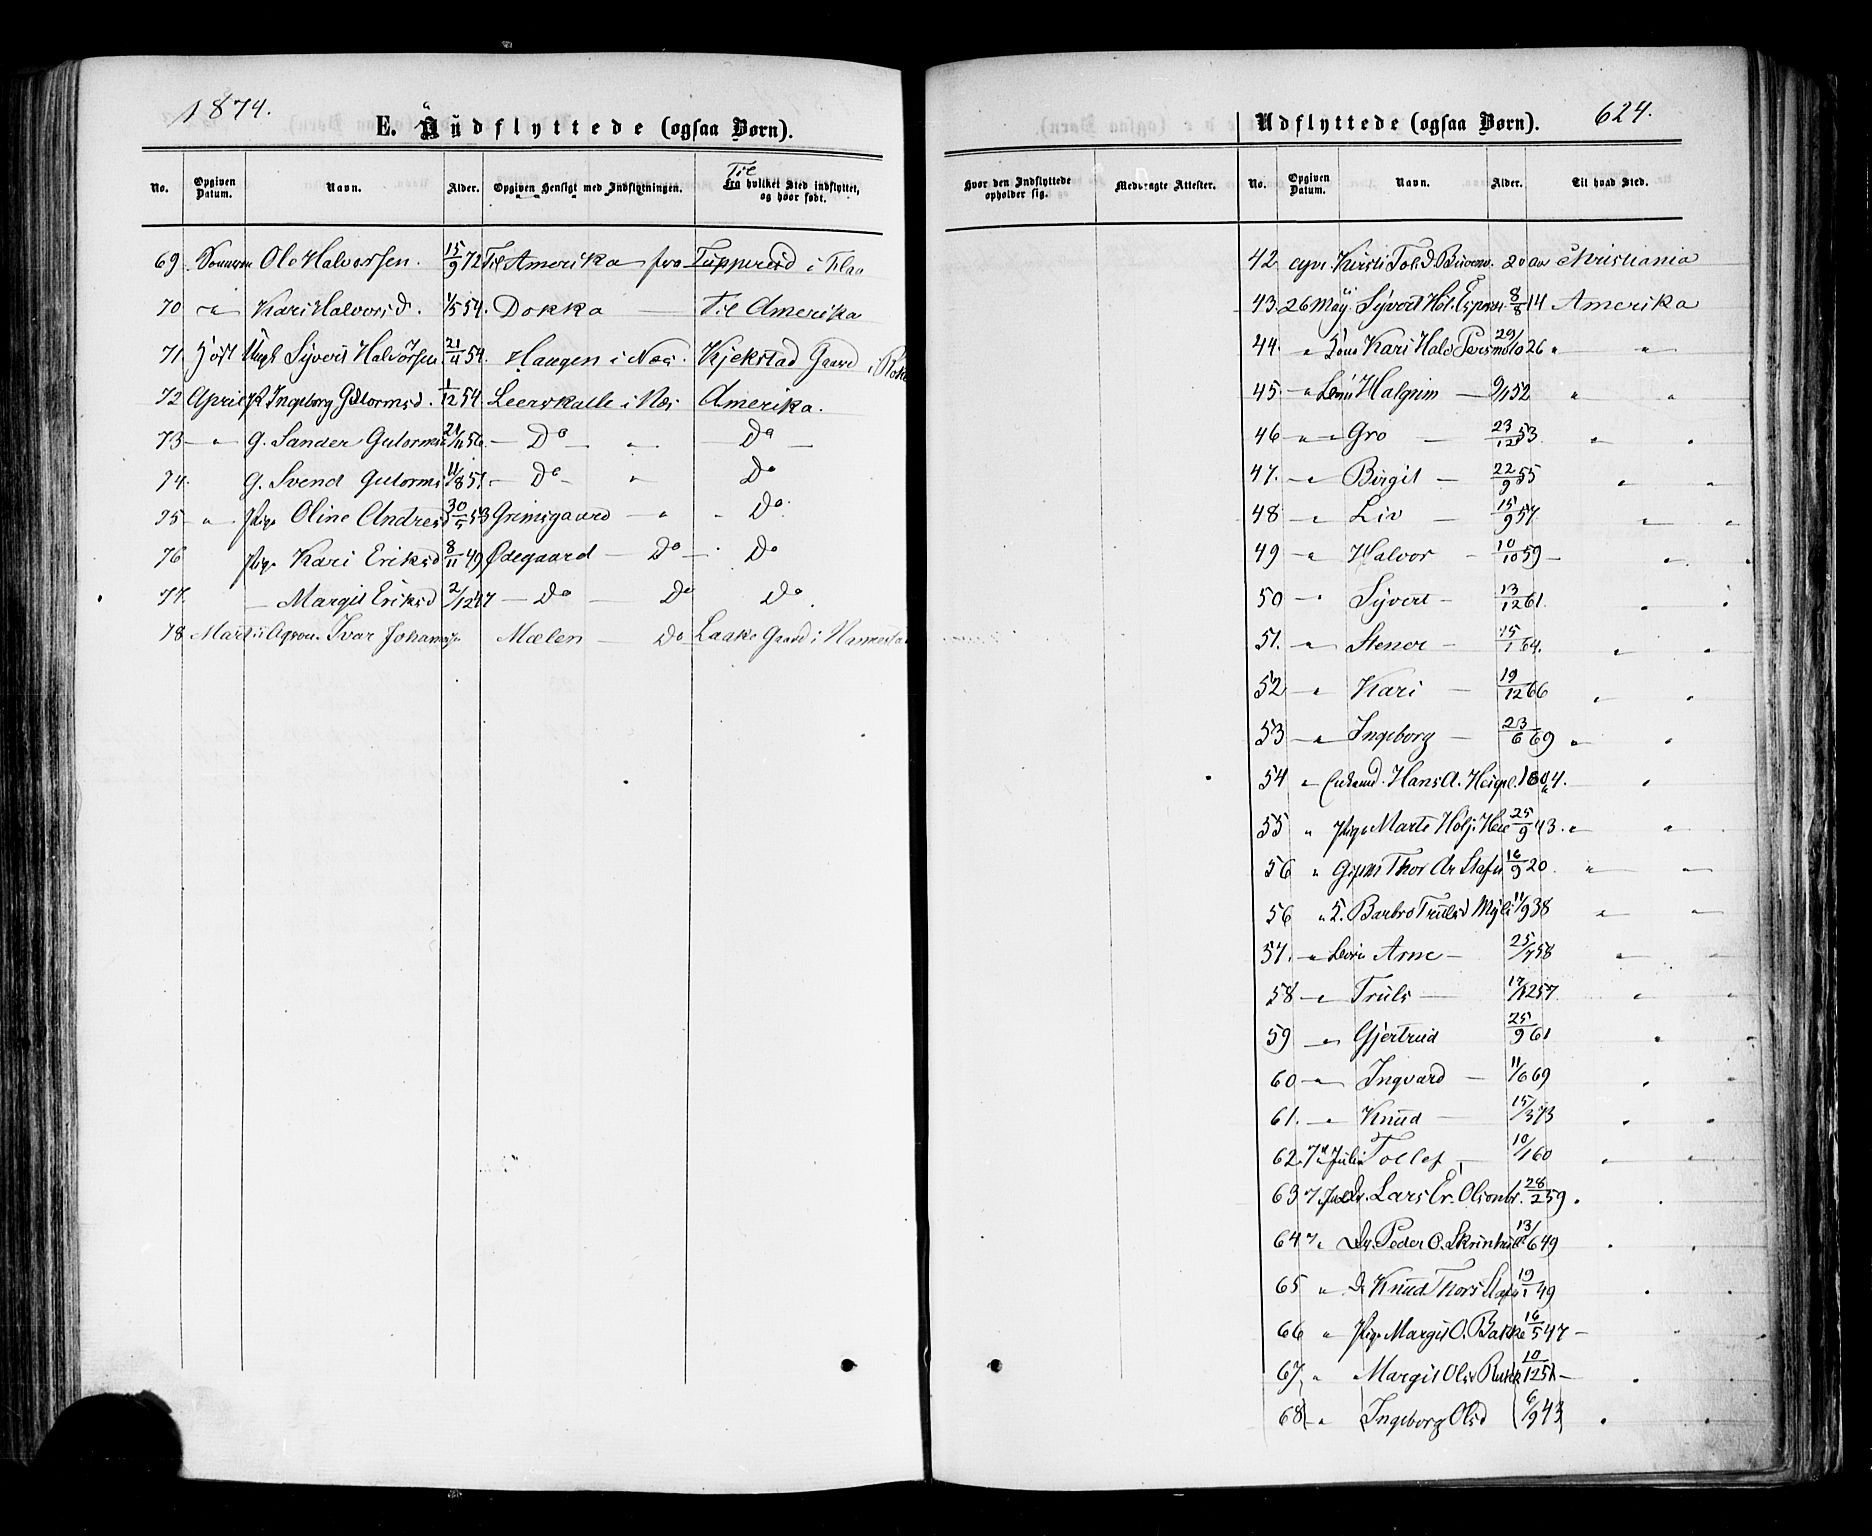 1874.
E. Udflyttede (ogsaa Børn).
No. Opgiven Datum. Navn. Alder. Opgiven Hensigt med Indflytningen. Til fra hvilket Sted indflyttet, og hvor født.
69 Ole Halvorsen. 15/9 72 Til Amerika fra i Flaa
70 " Kari Halvorsd. /5 54. Dokka — Til Amerika
71. Höst Ungk Syvert Halvorsen 21/11 54. Haugen i Næs. Kjekstad Gaard i
72 April P. Ingeborg Guttormsd. 1/12 54. Leerskalle i Næs Amerika.
73 — " G. Sander Gutorms 21/11 56. — Do — " Do —
74. G. Svend Gutorms 11/8 51 — Do — " Do
75 — " . Pige Oline Andresd 30/5 53 Grimsgaard — " - Do.
76 Pige Kari Eriksd 8/11 49 Ødegaard — Do — Do
77. — Margit Eriksd 2/12 47 — Do — Do Do.
78 Marts Agron. Ivar Johannes Mælen — Do Laake Gaard i
Udflyttede (ogsaa Børn). 624.
Hvor den Indflyttede opholder sig. Medbragte Attester. No. Opgiven Datum. Navn. Alder. Til hvad Sted.
42 Kirsti 20 aar Christiania
43. 26 May Syvert Hol. Espen 8/8 14 Amerika
44. " Kari Halv 29/10 26 " "
45. " Halgrim — 9/1 52 " "
46 " " Gro — 23/12 53. " "
47. — " Birgit — 22/9 55 " "
48 — " Liv — 15/9 57 " "
49 — " Halvor — 10/10 59 — " "
50 — " Syvert — 13/12 61. " "
51. — " Stener — 15/1 64. " "
52 — " Kari — 19/12 66 " "
53 — " Ingeborg — 23/6 69 " "
54 — " Hans A. 1804. "
55 " Pige Marte Holj. 25/9 43. " "
56 " Thor 16/9 20. " "
56 " Barbro Trulsd Myli 11/9 38 " "
57. — " Arne — 25/7 58 " "
58 — " Truls — 17/12 57. " "
59 — " Gjertrud 25/9 61 " "
60 — " Ingvard — 11/6 69 " "
61. — " Knud — 15/3 73 " "
62. 7d Juli Tollef — 10/1 60 " "
63 7 Lars Er. 28/2 59. " "
64 7 " Peder O. 13/6 49 " "
65 " Knud Thors 19/1 49 " "
66 " Pige Margit O. Bakke 16/5 47 — "
67. " Margit Olsd 10/12 51 — "
68 — " Ingeborg Olsd 6/9 43 " "